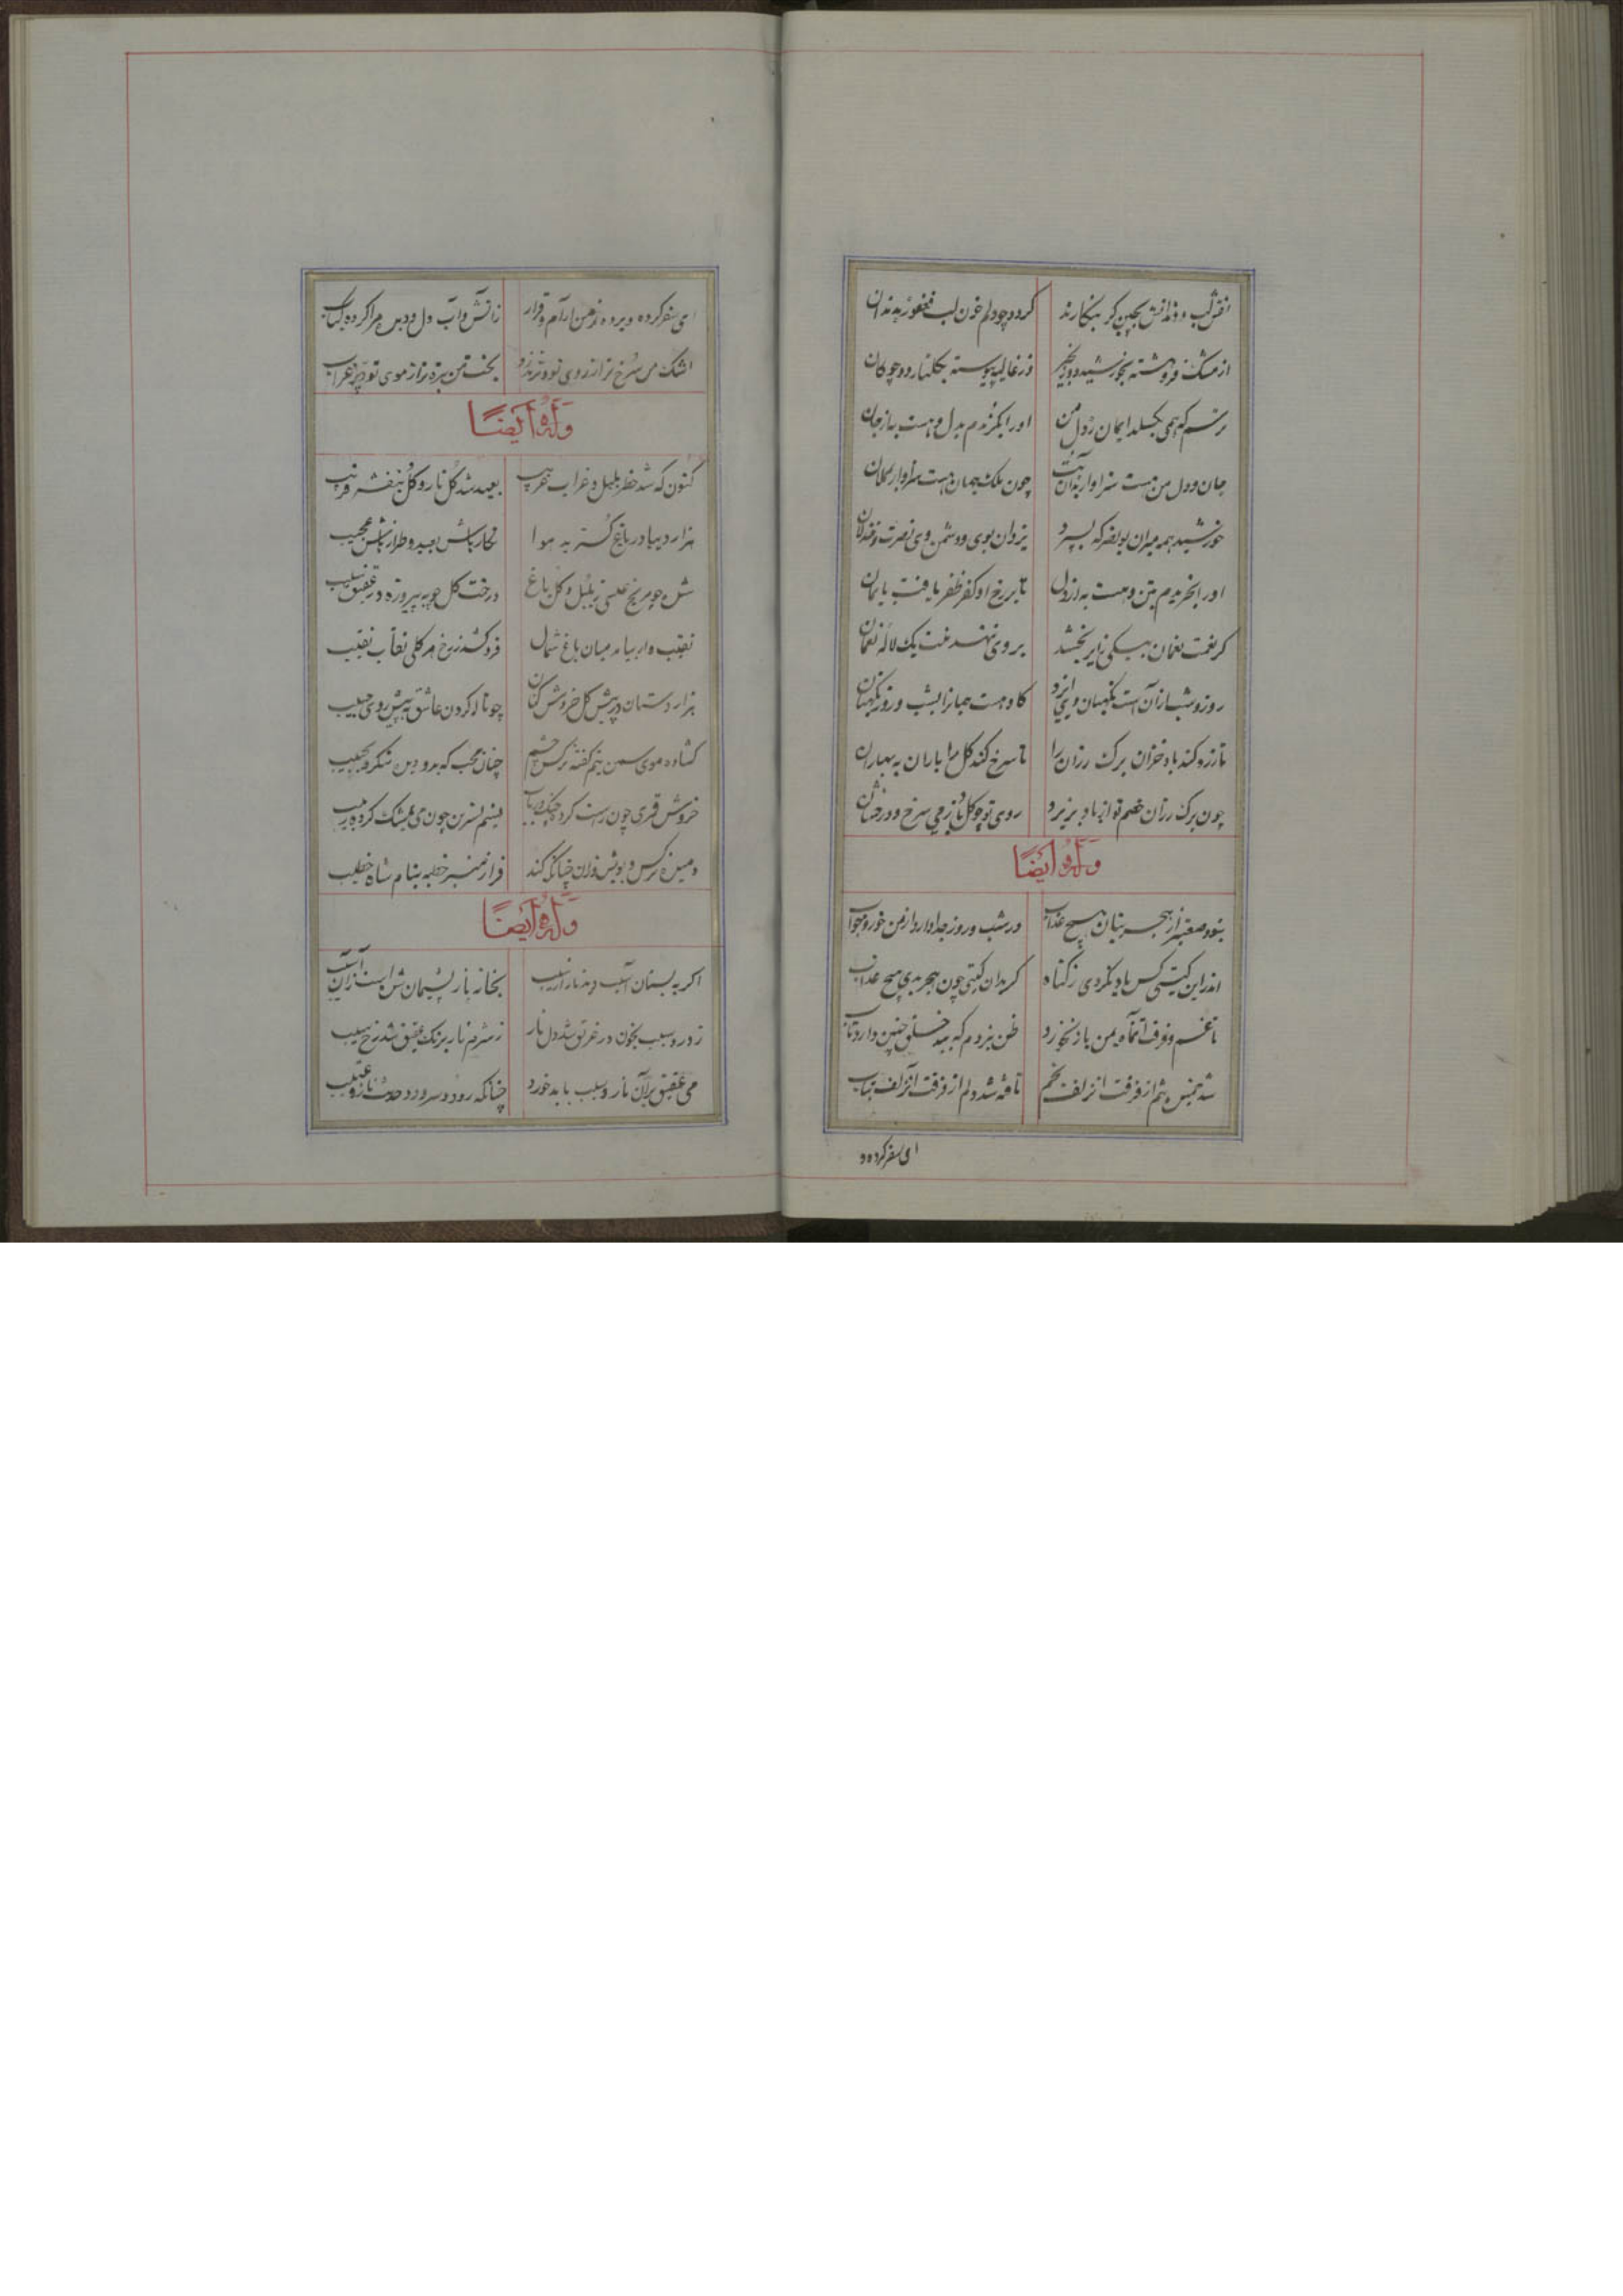 نقش لب و دندانش بچین گر بنگارند گردد چو دلم خون لب فغفور بدندان
از مشک فروهشته بخورشید دو زنجیر وز غالیه پیوسته بگلنار دو چوگان
ترسم که همی بگسلد ایمان ز دل من اورا بگزیدم بدل و هست به از جان
جان و دل من هست سزاوار بدان بت چون ملک جهان هست سزاوار بسلمان
خورشید همه میران بونصر که بسپرد یزدان بوی و دشمن وی نصرت و خذلان
اورا بخریدم بتن و هست به از دل تا بر رخ او کفر ظفر یافت بایمان
گر نعمت نعمان بیکی زایر بخشد بر وی ننهد منت یک لاله نعمان
روز و شب ازان است نگهبان وی ایزد کاو هست جهانرا بشب و روز نگهبان
تا زرد کند باد خزان برگ رزان را تا سرخ کند گل را باران به بهاران
چون برگ رزان خصم تو از باد بریزد روی تو چو گل باد ز می سرخ و درخشان
وله ایضاً
نبود صعبتر از هجر بتان هیچ عذاب در شب و روز جدا دارد از من خور و خواب
اندر این گیتی کس یاد نکردی ز گناه گر بدان گیتی چون هجر بدی هیچ عذاب
تا غم فرقت آنماه بمن باز نخورد ظن نبردم که بود خلق چنین دارد تاب
شد بخم پشتم از فرقت آن زلف بخم تافته شد دلم از فرقت آن زلف بتاب
ای سفر کرده و
ای سفر کرده و برده ز من آرام و قرار ز آتش و آب دل و دیده مرا کرده کباب
اشک من سرخ تر از روی تو و تذرو بخت من تیره تر از موی تو و پر غراب
وله ایضاً
کنون که شد خطر بلبل و غراب غریب بعید شد گل نار و گل بنفشه قریب
هزار دیبا در باغ گسترید هوا نگارهاش بعید و طرازهاش عجیب
شده چو مریخ عیسی ز بلبل و گل باغ درخت گل چو به پیروزه در عقیق صلیب
نقیب وار بیامد میان باغ شمال فرو کشد ز رخ هر گلی نقاب نقیب
هزار دستان در پیش گل خروش کنان چو ناز کردن عاشق به پیش روی حبیب
گشاده موی سمن نیم کفته نرگس چشم چنان محب که بدو در نگرد بحبیب
خروش قمری چون راست کرده چنگ و رباب نسیم نسترن چون می بمشک کرده ربیب
دمیده نرگس و بویش وزان چنانکه کند فراز منبر خطبه بنام شاه خطیب
وله ایضاً
اگر به بستان آسیب دید نار از سیب بخانه باز پشیمان شده است از آن آسیب
ز درد سیب بخون در غرق شد دل نار ز شرم نار برنگ عقیق شد رخ سیب
می عقیق بر آن نار و سیب باید خورد چنانکه رود و سرود و حدیث ناز و عتیب